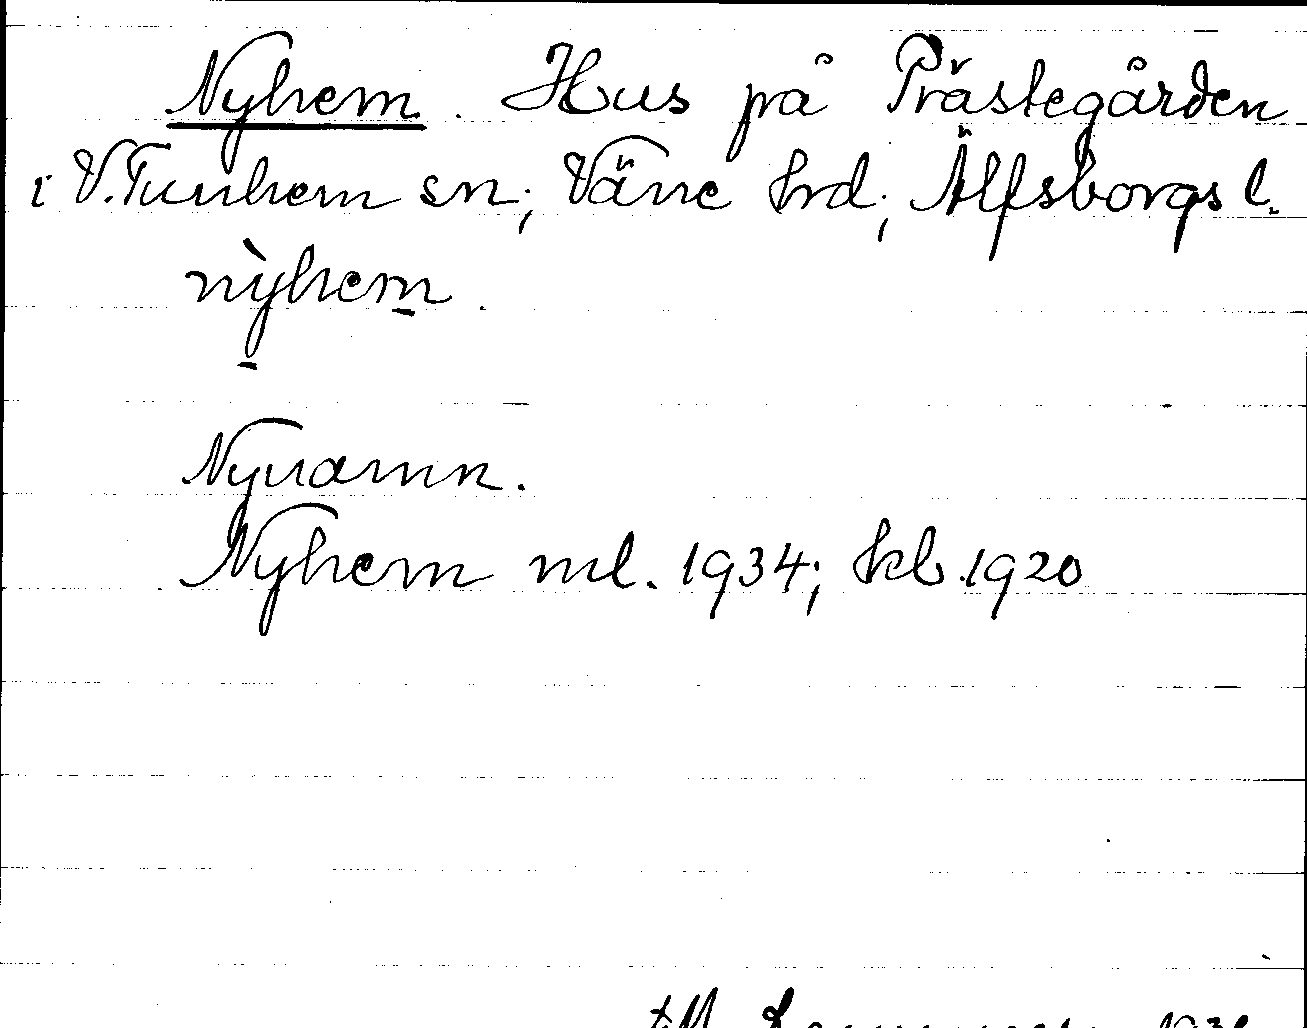 Nyhem. Hus på Prästegården
i V. Tunhem sn; Väne hrd; Älfsborgs l.
nỳhem.
Nynamn.
Nyhem ml. 1934; kb 1920